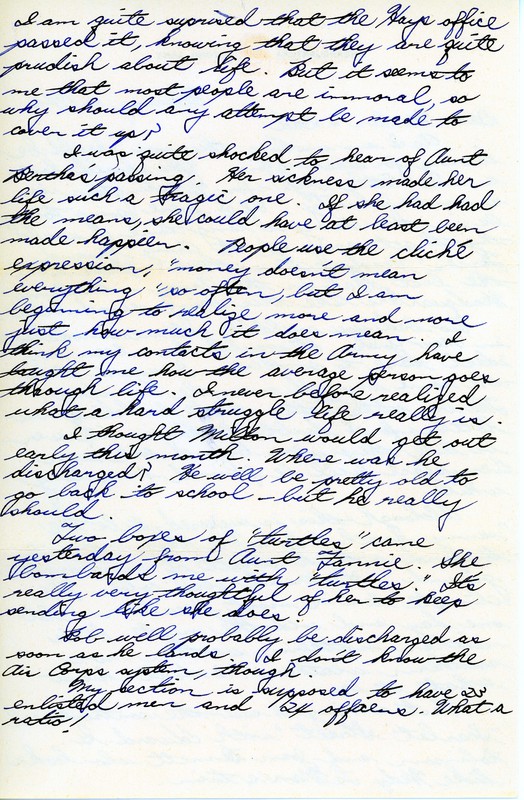 I am quite suprised that the Hays office
passed it, knowing that they are quite
prudish about life. But it seems to
me that most people are immoral, so
why should any attempt be made to
cover it up?
I was quite shocked to hear of Aunt
Berthas passing. Her sickness made her
life such a tragic one. If she had had
the means, she could have at least been
made happier. People use the cliché
expression, "money doesn't mean
everything" so often, but I am
beginning to realize more and more
just how much it does mean. I
think my contacts in the Army have
taught me how the average person goes
through life. I never before realized
what a hard struggle life really is.
I thought Milton would get out
early this month. Where was he
discharged? He will be pretty old to
go back to school - but he really
should.
Two boxes of "turtles" came
yesterday from Aunt Fannie. She
bombards me with "turtles." It's
really very thoughtful of her to keep
sending like she does.
Bob will probably be discharged as
soon as he lands. I don't know the
Air Corps system, though.
My section is supposed to have 23
enlisted men and 24 officers. What a
ratio!